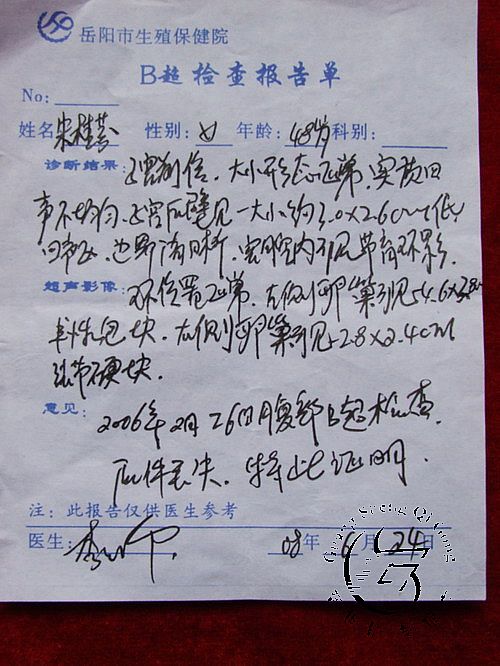 岳阳市生殖保健院
B超检查报告单
No:
姓名 朱桂 性别: 女 年龄: 48岁 科别:
诊断结果: 子宫前位. 大小形态正常, 实质回
声不均匀. 子宫后壁见一大小约3.0×2.6cm低
回声区, 边界清晰, 宫腔内可见节育环影.
超声影像: 环位置正常. 左侧卵巢见
性包块. 右侧卵巢见2.8×2.4cm
硬块.
意见: 2006年2月26日腹部B超检查.
原件丢失. 特此证明.
注: 此报告仅供医生参考
医生: 08年 6月 24日